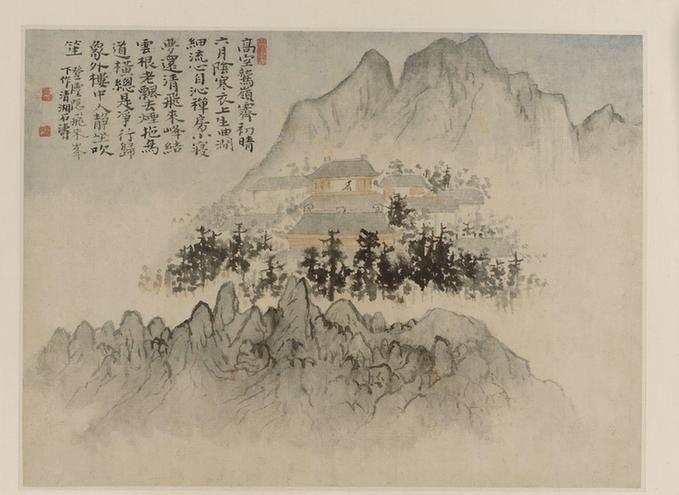 高空鷲嶺霽初晴
六月陰寒衣上生曲澗
細流心自沁禪房小寢
夢還清飛來峰結
雲根老飄去煙拖鳥
道橫總是淨行歸
象外樓中人靜坐吹
笙 登靈隱飛來峯
下作清湘石濤